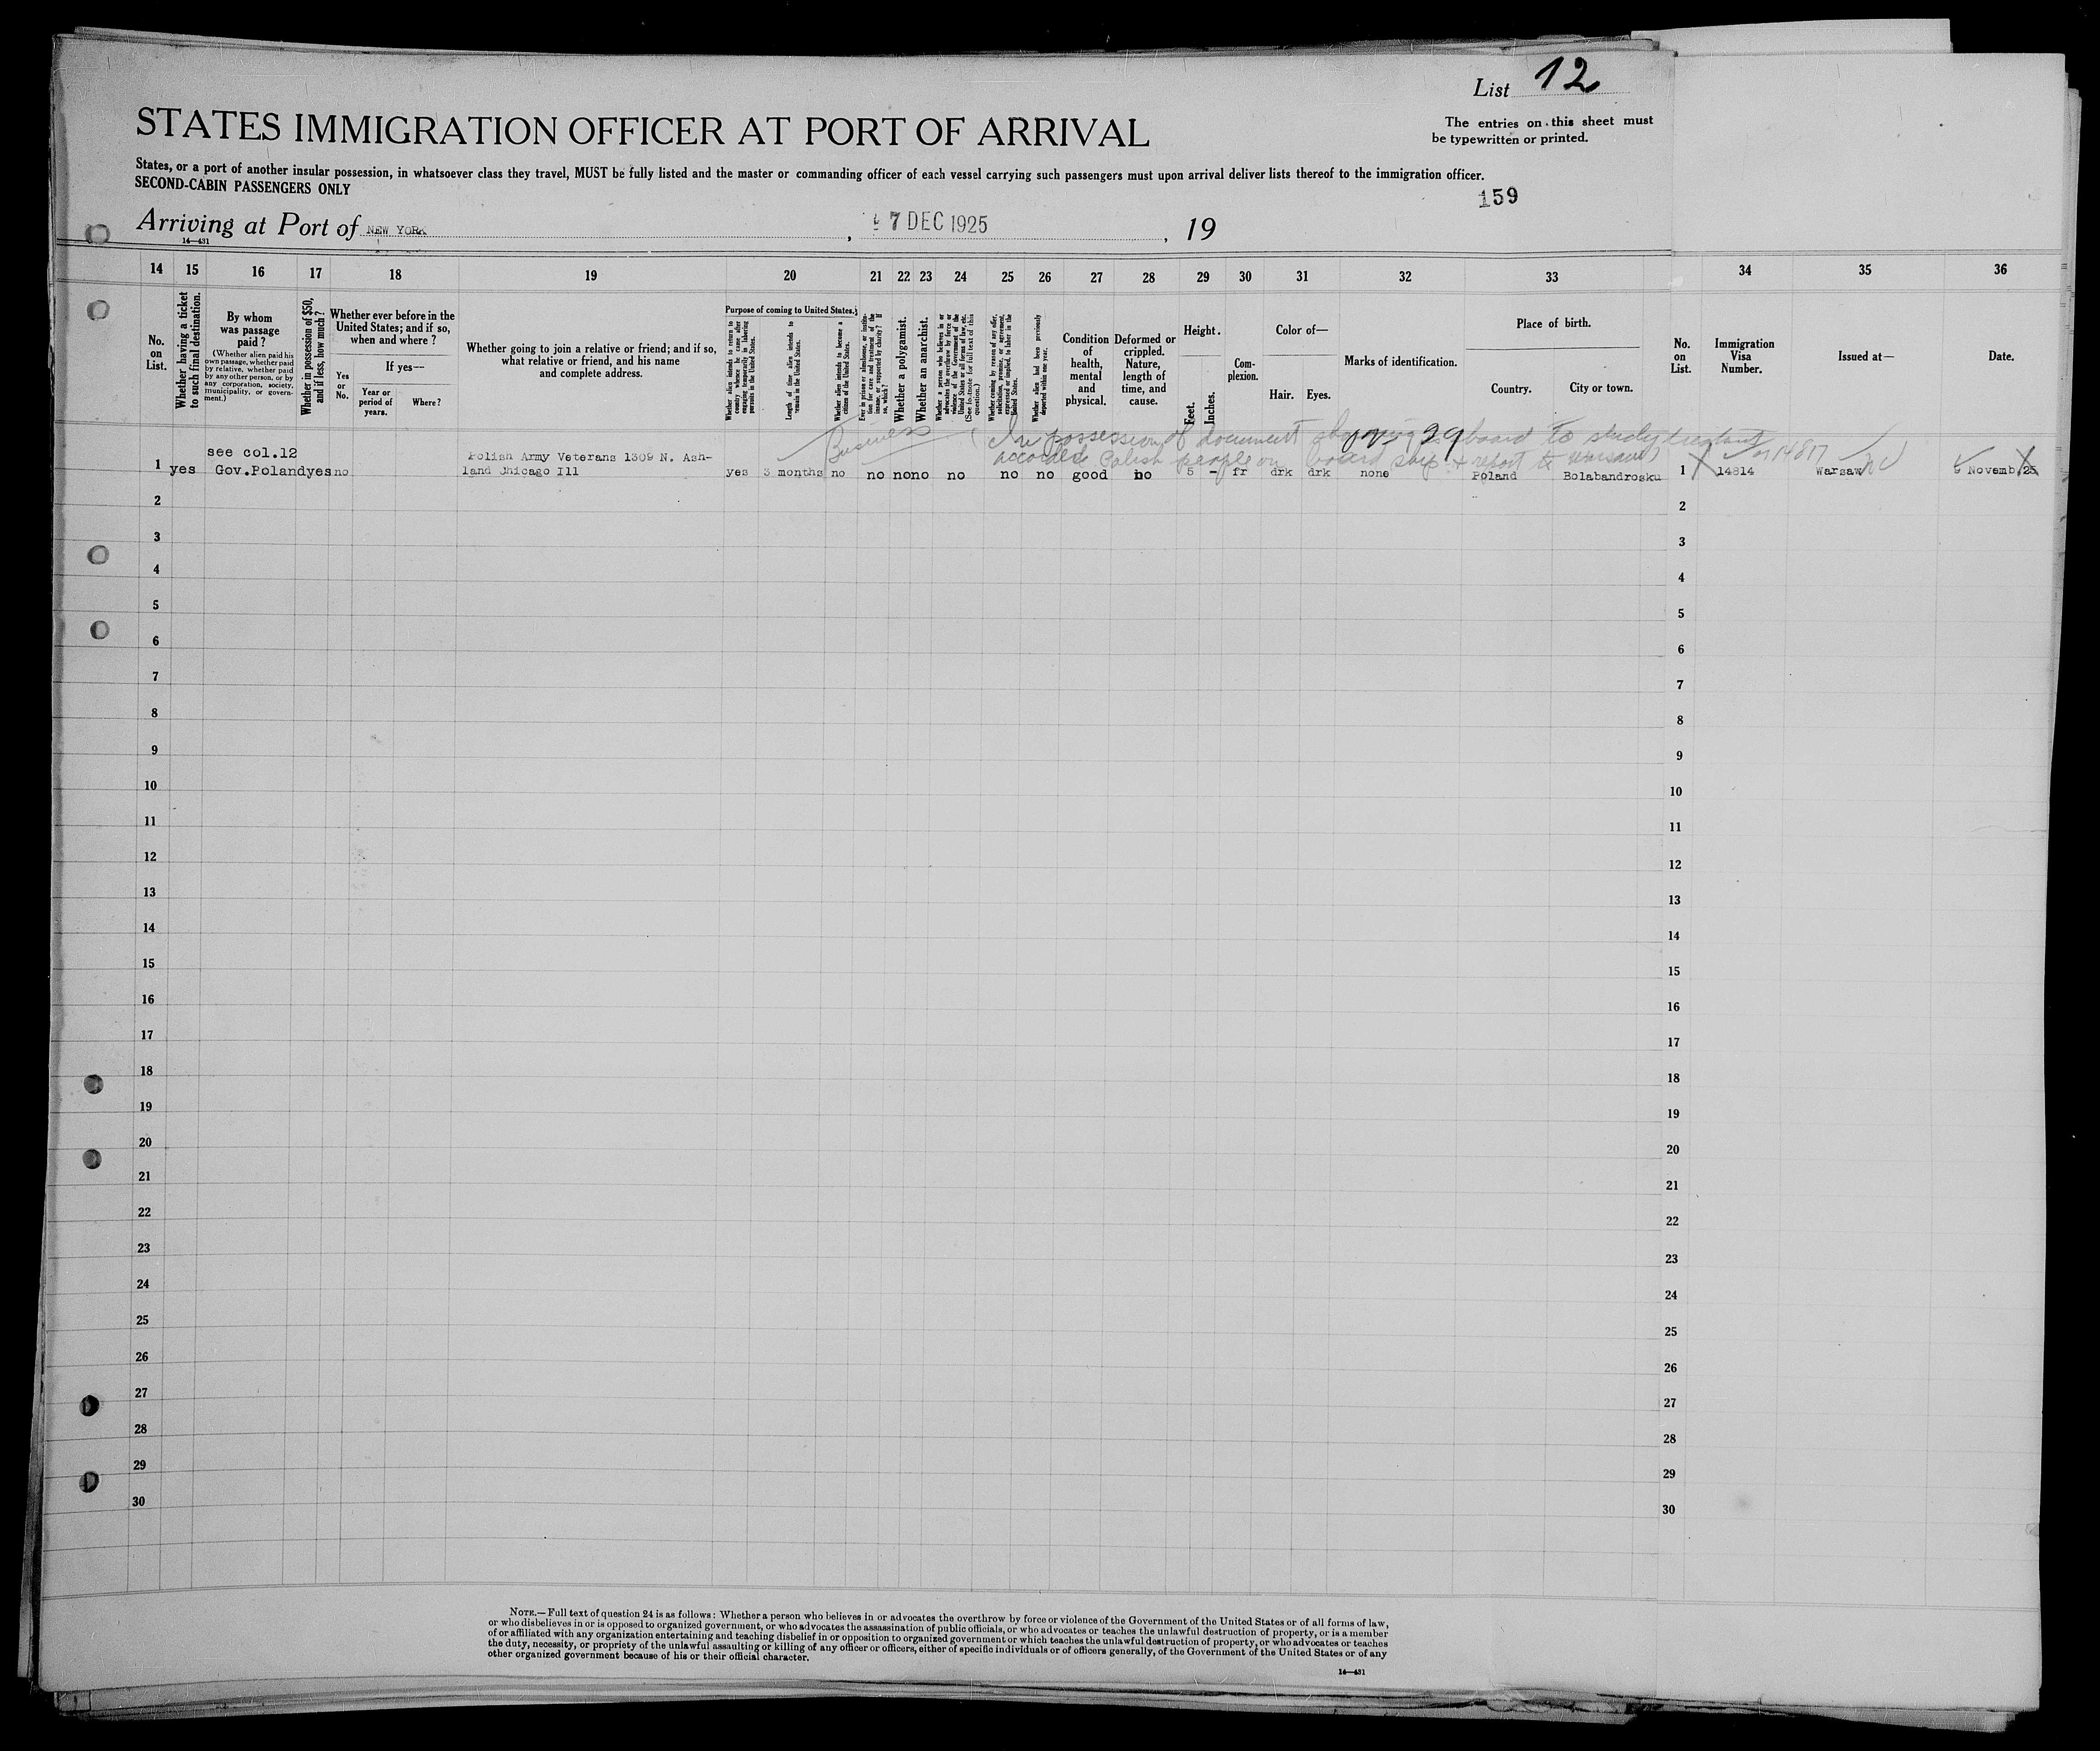 List 12
STATES IMMIGRATION OFFICER AT PORT OF ARRIVAL
The entries on this sheet must
be typewritten or printed.
States, or a port of another insular possession, in whatsoever class they travel, MUST be fully listed and the master or commanding officer of each vessel carrying such passengers must upon arrival deliver lists thereof to the immigration officer.
SECOND-CABIN PASSENGERS ONLY
159
Arriving at Port of NEW YORK, 7 DEC 1925, 19
14—431
14 15 16 17 18 19 20 21 22 23 24 25 26 27 28 29 30 31 32 33 34 35 36
No. on List.
Whether having a ticket to such final destination.
By whom was passage paid?
(Whether alien paid his own passage, whether paid by relative, whether paid by any other person, or by any corporation, society, municipality, or government.)
Whether in possession of $50, and if less, how much?
Whether ever before in the United States; and if so, when and where?
Yes or No.
If yes—
Year or period of years.
Where?
Whether going to join a relative or friend; and if so, what relative or friend, and his name and complete address.
Purpose of coming to United States.
Whether alien intends to return to country whence he came after engaging temporarily in laboring pursuits in the United States.
Length of time alien intends to remain in the United States.
Whether alien intends to become a citizen of the United States.
Ever in prison or almshouse, or institution for care and treatment of the insane, or supported by charity? If so, which?
Whether a polygamist.
Whether an anarchist.
Whether a person who believes in or advocates the overthrow by force or violence of the Government of the United States or all forms of law, etc. (See footnote for full text of this question.)
Whether coming by reason of any offer, solicitation, promise, or agreement, expressed or implied, to labor in the United States.
Whether alien had been previously deported within one year.
Condition of health, mental and physical.
Deformed or crippled. Nature, length of time, and cause.
Height.
Feet.
Inches.
Complexion.
Color of—
Hair.
Eyes.
Marks of identification.
Place of birth.
Country.
City or town.
No. on List.
Immigration Visa Number.
Issued at—
Date.
Business
In possession of document showing 29 board to study
accorded Polish people on board ship & report to Warsaw)
14817
see col.12
Polish Army Veterans 1309 N. Ash-
1 yes Gov.Poland yes no land Chicago Ill yes 3 months no no no no no no no good no 5 - fr drk drk none Poland Bolabandrosku 1 14814 Warsaw 9 Novemb.25
2 2
3 3
4 4
5 5
6 6
7 7
8 8
9 9
10 10
11 11
12 12
13 13
14 14
15 15
16 16
17 17
18 18
19 19
20 20
21 21
22 22
23 23
24 24
25 25
26 26
27 27
28 28
29 29
30 30
NOTE.—Full text of question 24 is as follows: Whether a person who believes in or advocates the overthrow by force or violence of the Government of the United States or of all forms of law,
or who disbelieves in or is opposed to organized government, or who advocates the assassination of public officials, or who advocates or teaches the unlawful destruction of property, or is a member
of or affiliated with any organization entertaining and teaching disbelief in or opposition to organized government or which teaches the unlawful destruction of property, or who advocates or teaches
the duty, necessity, or propriety of the unlawful assaulting or killing of any officer or officers, either of specific individuals or of officers generally, of the Government of the United States or of any
other organized government because of his or their official character.
14—431